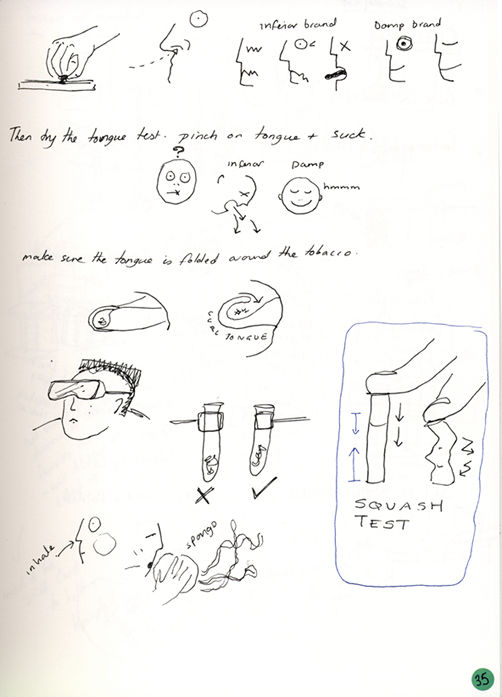 inferior brand
Damp brand
Then dry the tongue test. pinch on tongue + suck.
?
inferior
Damp
hmmm
make sure the tongue is folded around the tobacco.
CURL TONGUE
SQUASH
TEST
inhale
spongo
35